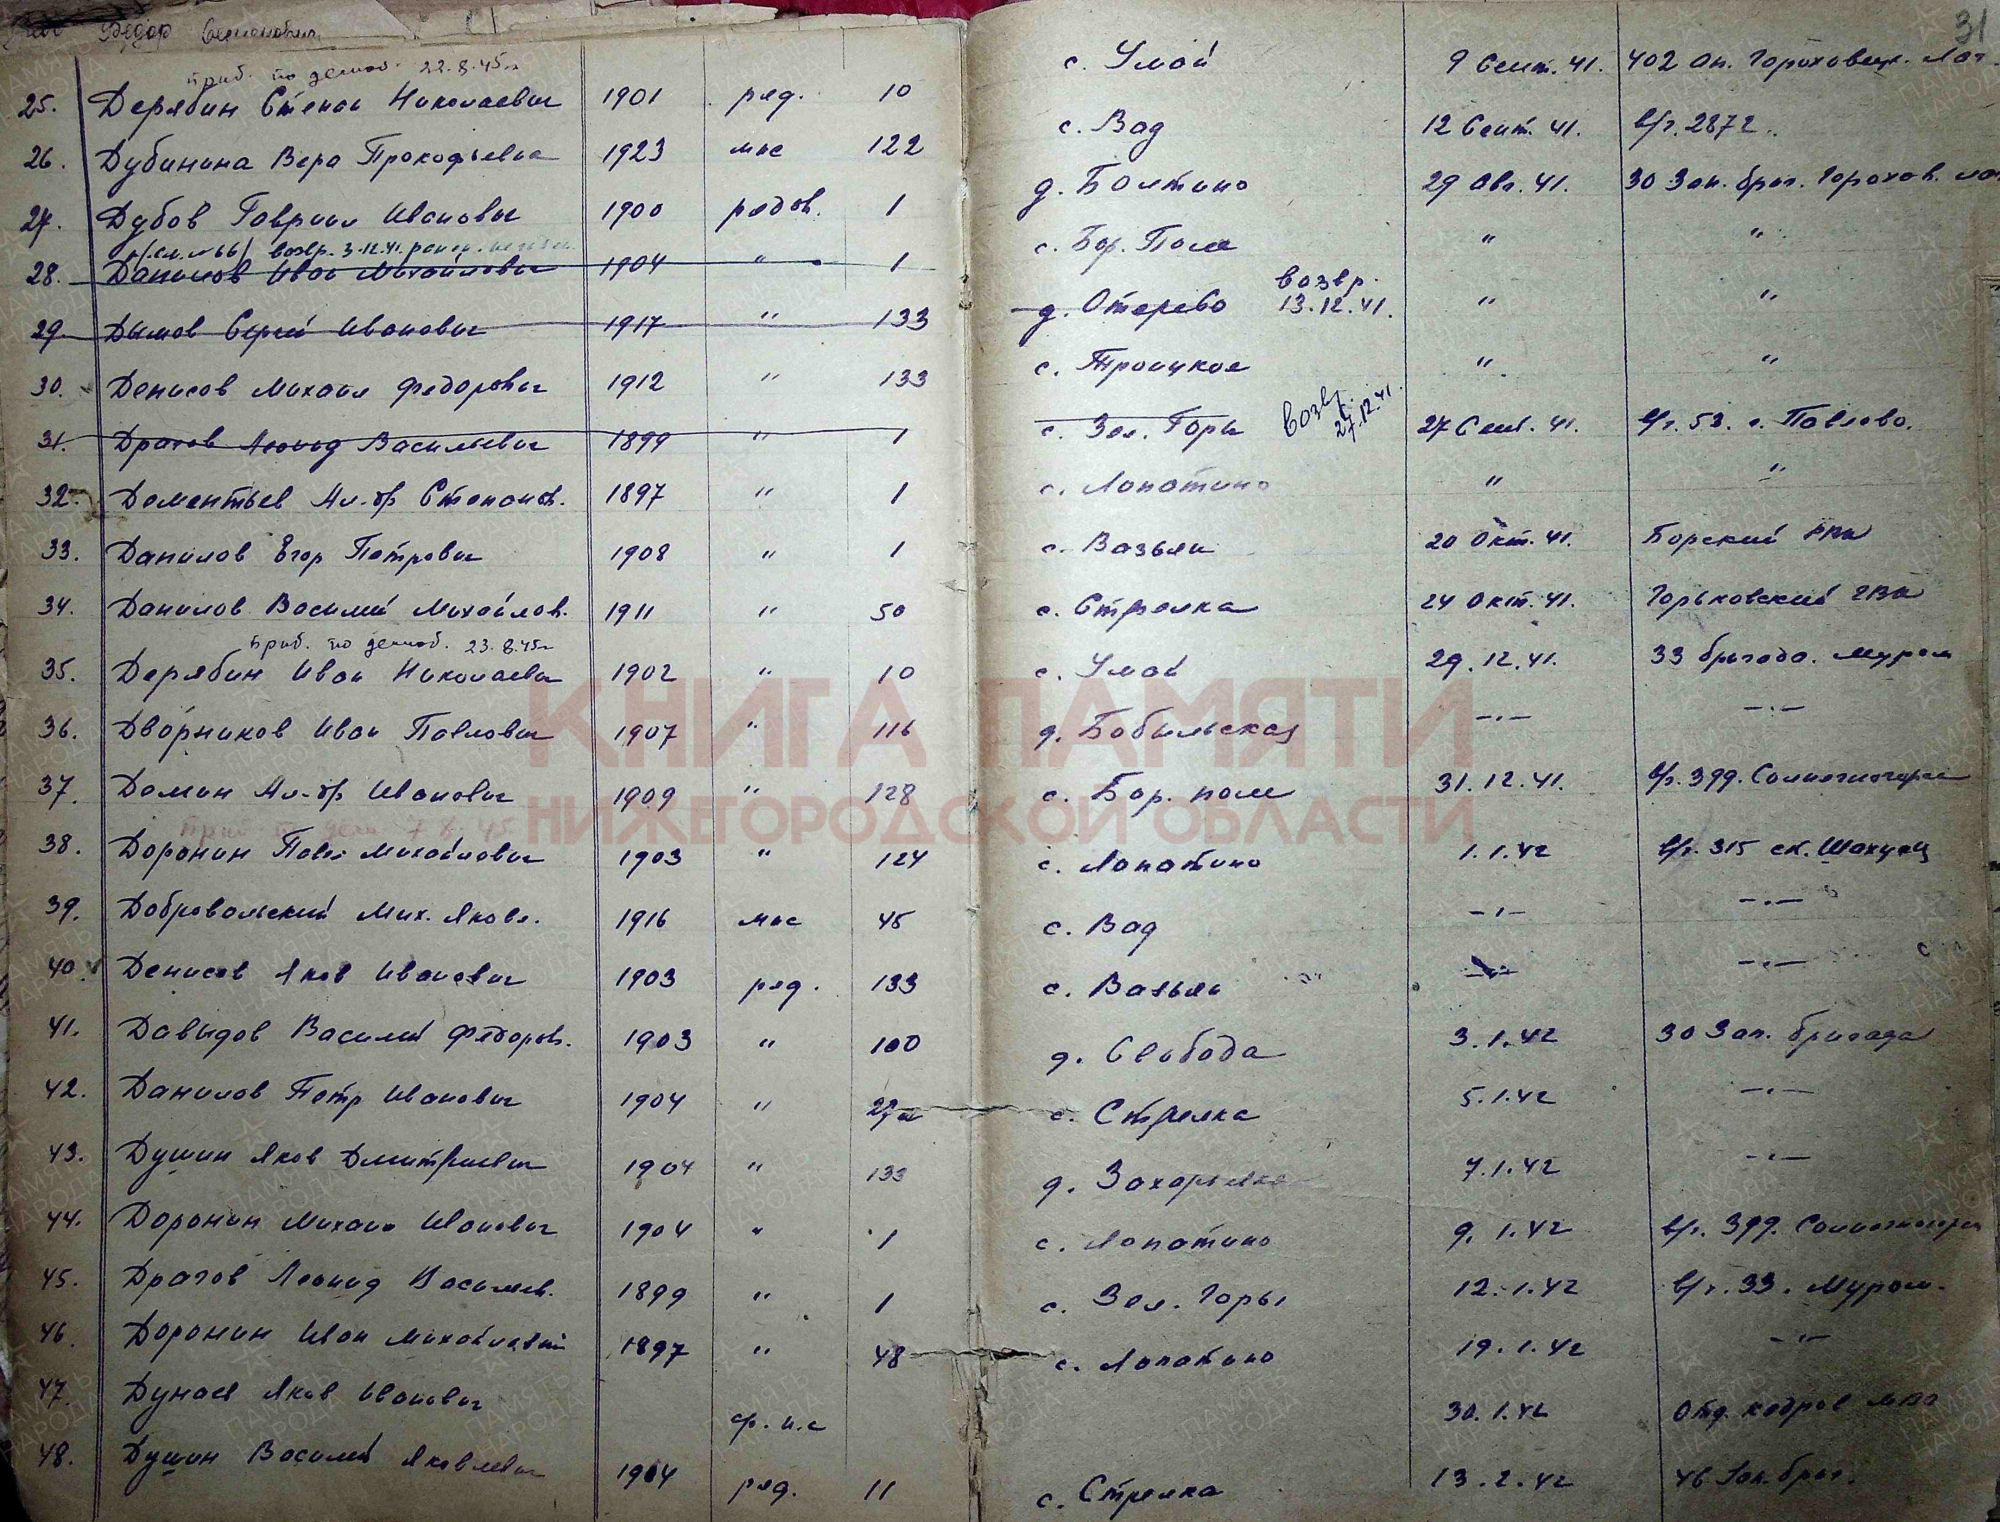 Федор Семенович
31
Приб. по демоб. 22.8.45г
25. Дерябин Степан Николаевич 1901 ряд. 10 с. Умай 9 Сент. 41. 402 Ап. Гороховец. Лаг.
26. Дубинина Вера Прокофьевна 1923 мнс 122 с. Вад 12 Сент. 41. в/ч. 2872.
27. Дубов Гавриил Иванович 1900 рядов. 1 д. Болтино 29 Авг. 41. 30 Зап. бриг. Горохов. лаг
/см. №66/ возвр. 3.12.41.
28. Данилов Иван Михайлович 1904 " 1 с. Бор. Поле " "
29. Дымов Сергей Иванович 1917 " 133 д. Отерево возвр. 13.12.41. " "
30. Денисов Михаил Федорович 1912 " 133 с. Троицкое " "
31. Драгов Леонид Васильевич 1899 " 1 с. Зел. Горы возвр. 27.12.41 27 Сент. 41. в/ч. 53. г. Павлово.
32. Дементьев Ал-др Степанов. 1897 " 1 с. Лопатино " "
33. Данилов Егор Петрович 1908 " 1 с. Вазьян 20 Окт. 41. Борский РВК
34. Данилов Василий Михайлов. 1911 " 50 с. Стрелка 24 Окт. 41. Горьковский ГВК
Приб. по демоб. 23.8.45г
35. Дерябин Иван Николаевич 1902 " 10 с. Умай 29.12.41. 33 бригада. Муром
36. Дворников Иван Павлович 1907 " 116 д. Бобыльская -"- -"-
37. Демин Ал-др Иванович 1909 " 128 с. Бор. поле 31.12.41. в/ч. 399. Солнечногорск
Приб по дем 7.8.45
38. Доронин Павел Михайлович 1903 " 124 с. Лопатино 1.1.42 в/ч. 315 ст. Шахунья
39. Добровольский Мих. Яковл. 1916 мнс 45 с. Вад -"- -"-
40. Денисов Яков Иванович 1903 ряд. 133 с. Вазьян -"- -"-
41. Давыдов Василий Федоров. 1903 " 100 д. Свобода 3.1.42 30 Зап. бригада
42. Данилов Петр Иванович 1904 " 27а с. Стрелка 5.1.42 -"-
43. Душин Яков Дмитриевич 1904 " 133 д. Захарьевка 7.1.42 -"-
44. Доронин Михаил Иванович 1904 " 1 с. Лопатино 9.1.42 в/ч. 399. Солнечногорск
45. Драгов Леонид Васильев. 1899 " 1 с. Зел. Горы 12.1.42 в/ч. 33. Муром.
46. Доронин Иван Михайлович 1897 " 48 с. Лопатино 19.1.42 -"-
47. Дунаев Яков Иванович 30.1.42 Отд. кадров МВО
48. Душин Василий Яковлевич 1904 ряд. 11 с. Стрелка 13.2.42 46 Зап. бриг.
КНИГА ПАМЯТИ
НИЖЕГОРОДСКОЙ ОБЛАСТИ
ПАМЯТЬ НАРОДА